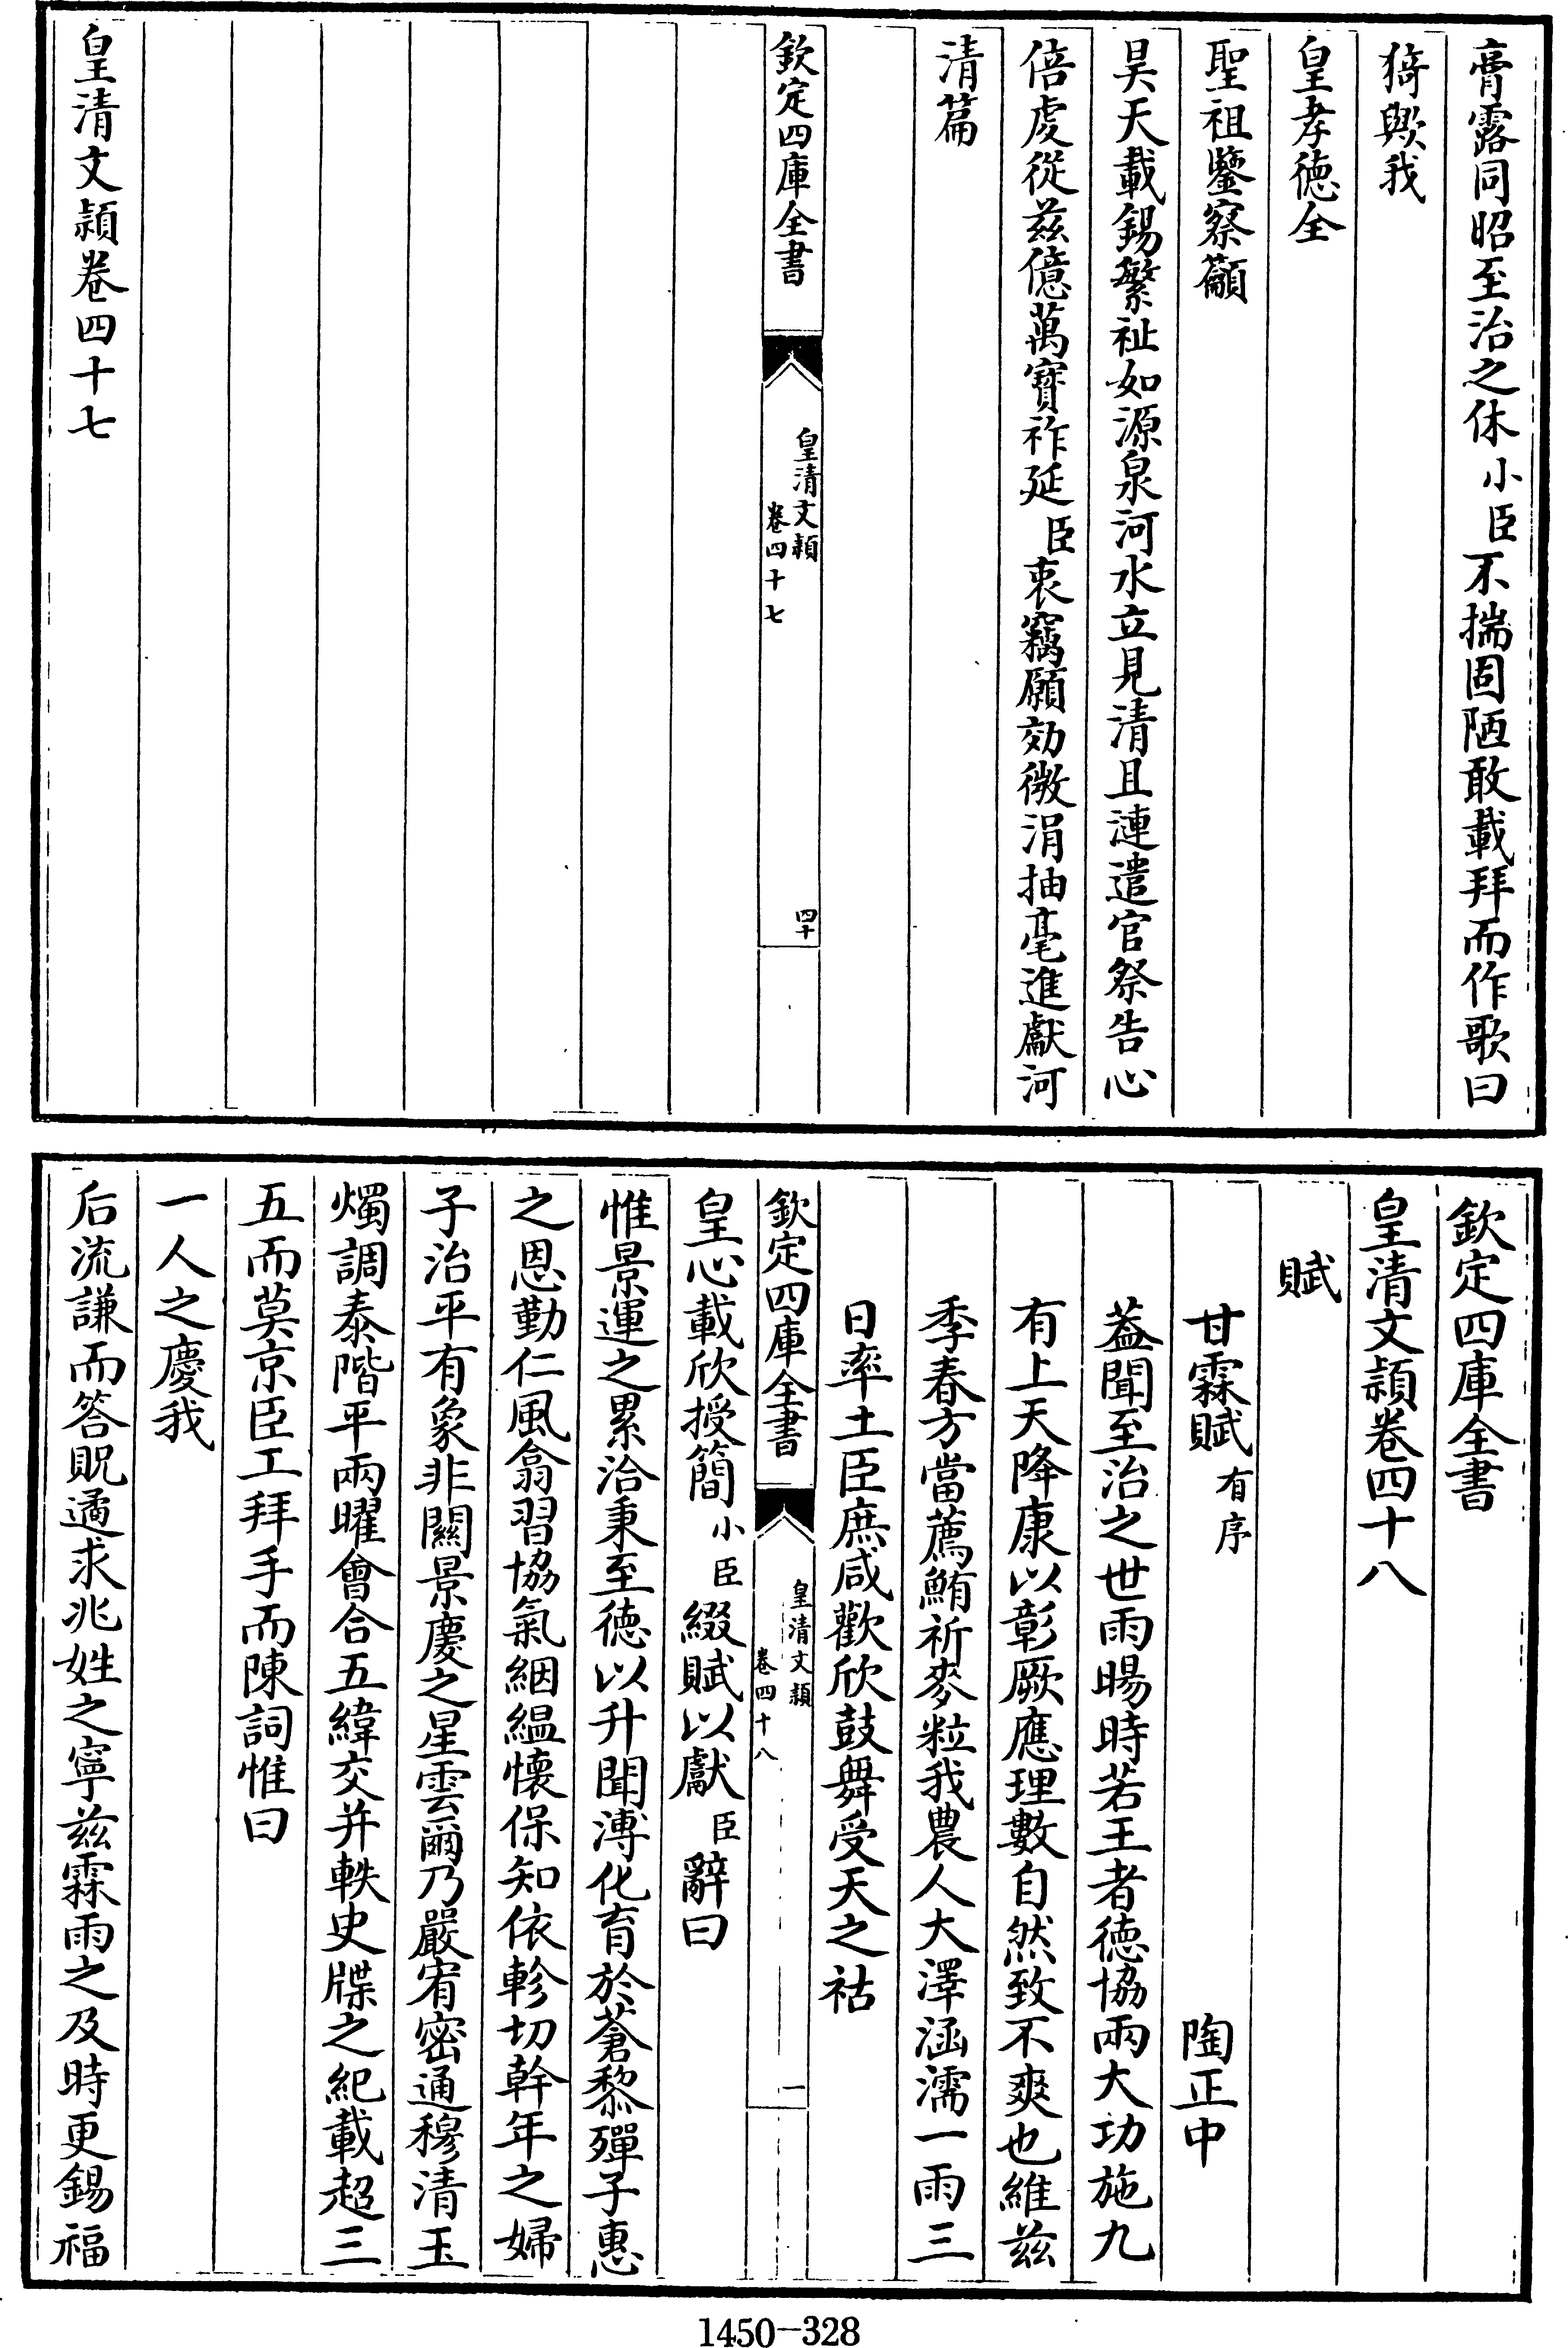 膏露同昭至治之休小臣不揣固陋敢載拜而作歌曰
猗歟我
皇孝德全
聖祖鑒察籲
昊天載錫繁祉如源泉河水立見清且漣遣官祭告心
倍虔從兹億萬寳祚延臣衷竊願効微涓抽毫進獻河
清篇
欽定四庫全書
皇清文穎
卷四十七
四十
皇清文穎卷四十七
欽定四庫全書
皇清文穎卷四十八
賦
甘霖賦有序 陶正中
葢聞至治之世雨暘時若王者德協兩大功施九
有上天降康以彰厥應理數自然致不爽也維兹
季春方當薦鮪祈麥粒我農人大澤涵濡一雨三
日率土臣庶咸歡欣鼓舞受天之祜
欽定四庫全書
皇清文穎
卷四十八
一
皇心載欣授簡小臣綴賦以獻臣辭曰
惟景運之累洽秉至德以升聞溥化育於蒼黎殫子惠
之恩勤仁風翕習協氣絪緼懷保知依軫切幹年之婦
子治平有象非關景慶之星雲爾乃嚴宥密通穆清玉
燭調泰階平兩曜會合五緯交并軼史牒之紀載超三
五而莫京臣工拜手而陳詞惟曰
一人之慶我
后流謙而答貺遹求兆姓之寧兹霖雨之及時更錫福
1450-328